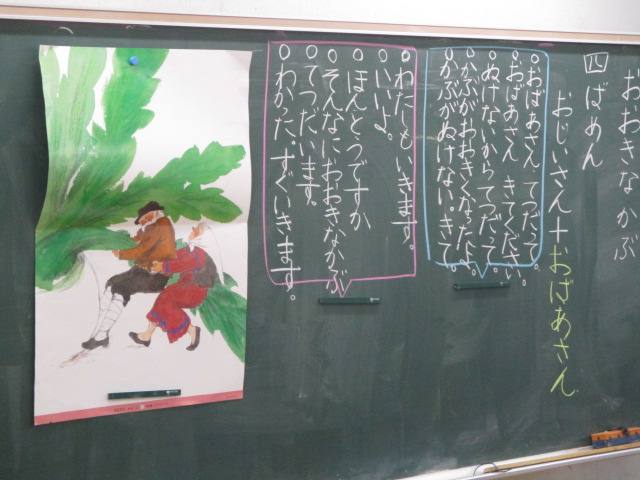 おおきなかぶ
四ばめん
おじいさん＋おばあさん
○おばあさん てつだって。
○おばあさん きてください。
○ぬけないからてつだって。
○かぶがおおきくなったよ。
○かぶがぬけない。きて。
○わたしもいきます。
○いいよ。
○ほんとうですか
○そんなにおおきなかぶ
○てつだいます。
○わかった。すぐいきます。